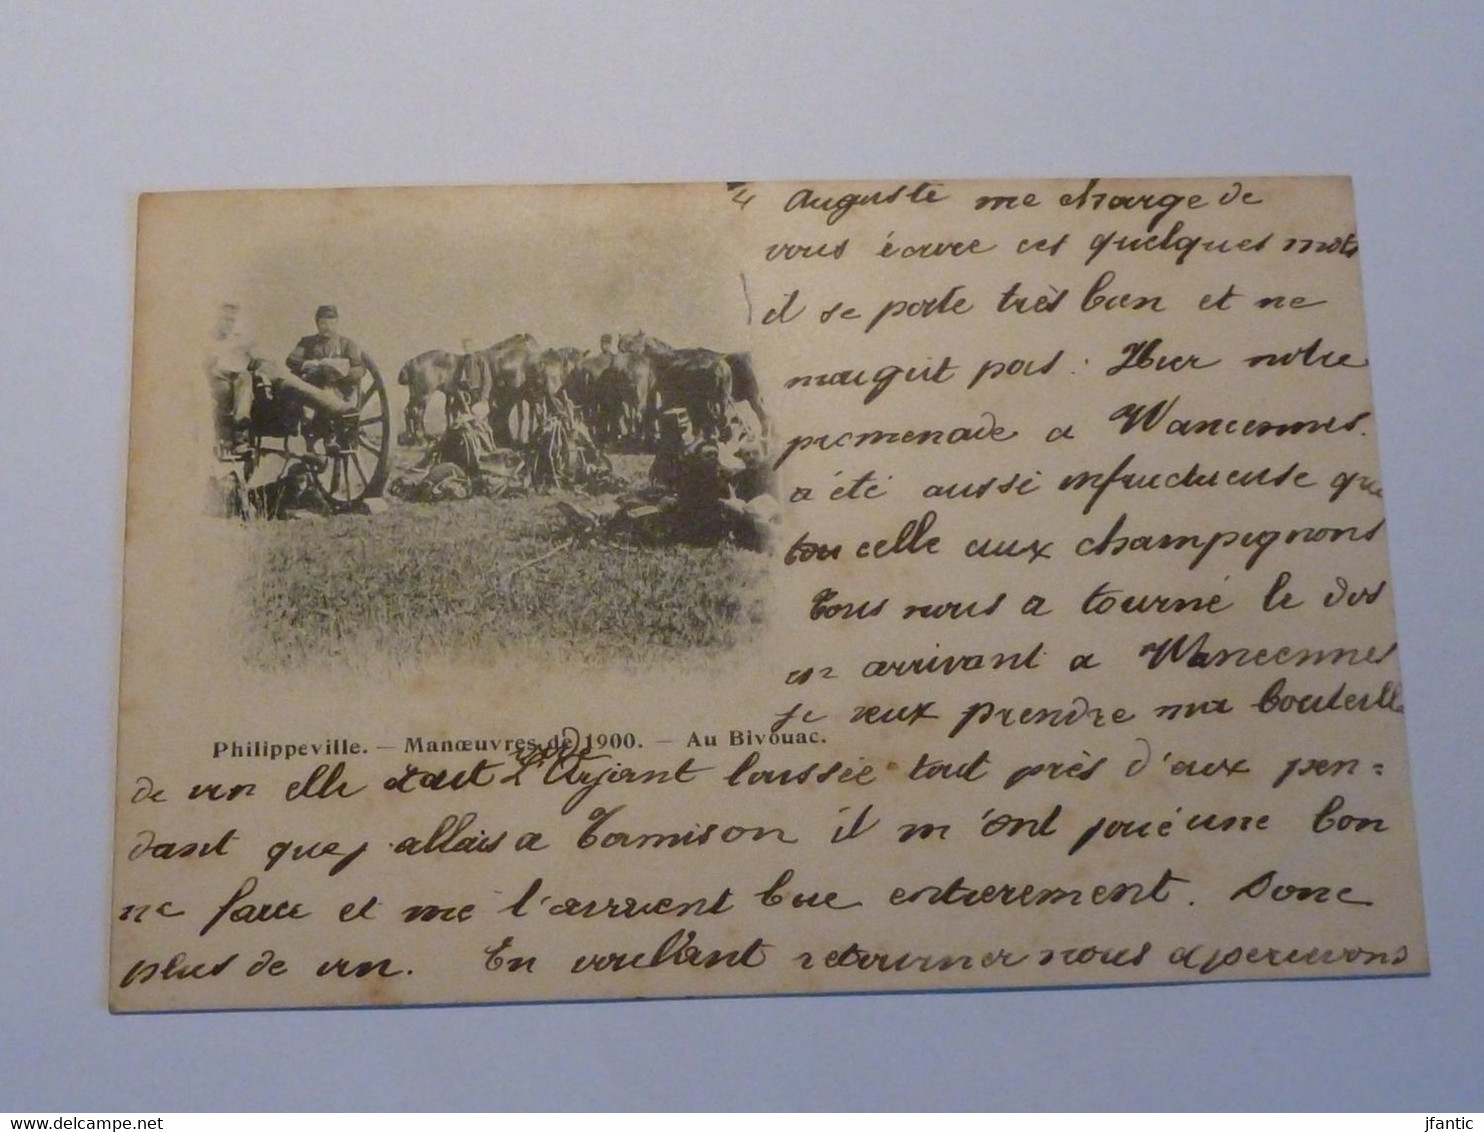 4 Auguste me charge de
vous écrire ces quelques mots
il se porte très bien et ne
maigrit pas. Hier notre
promenade a Wancennes.
a été aussi infructueuse que
celle aux champignons
Tous nous a tourné le dos
en arrivant a Wancennes
je veux prendre ma bouteille
Philippeville. — Manœuvres de 1900. — Au Bivouac.
de vin elle était vide L'Ayant laissée tout près d'eux pen=
dant que j allais a Tamison il m'ont joué une bon
ne farce et me l'avaient bue entièrement. Donc
plus de vin. En voulant retourner nous apercevons
delcampe.net
jfantic